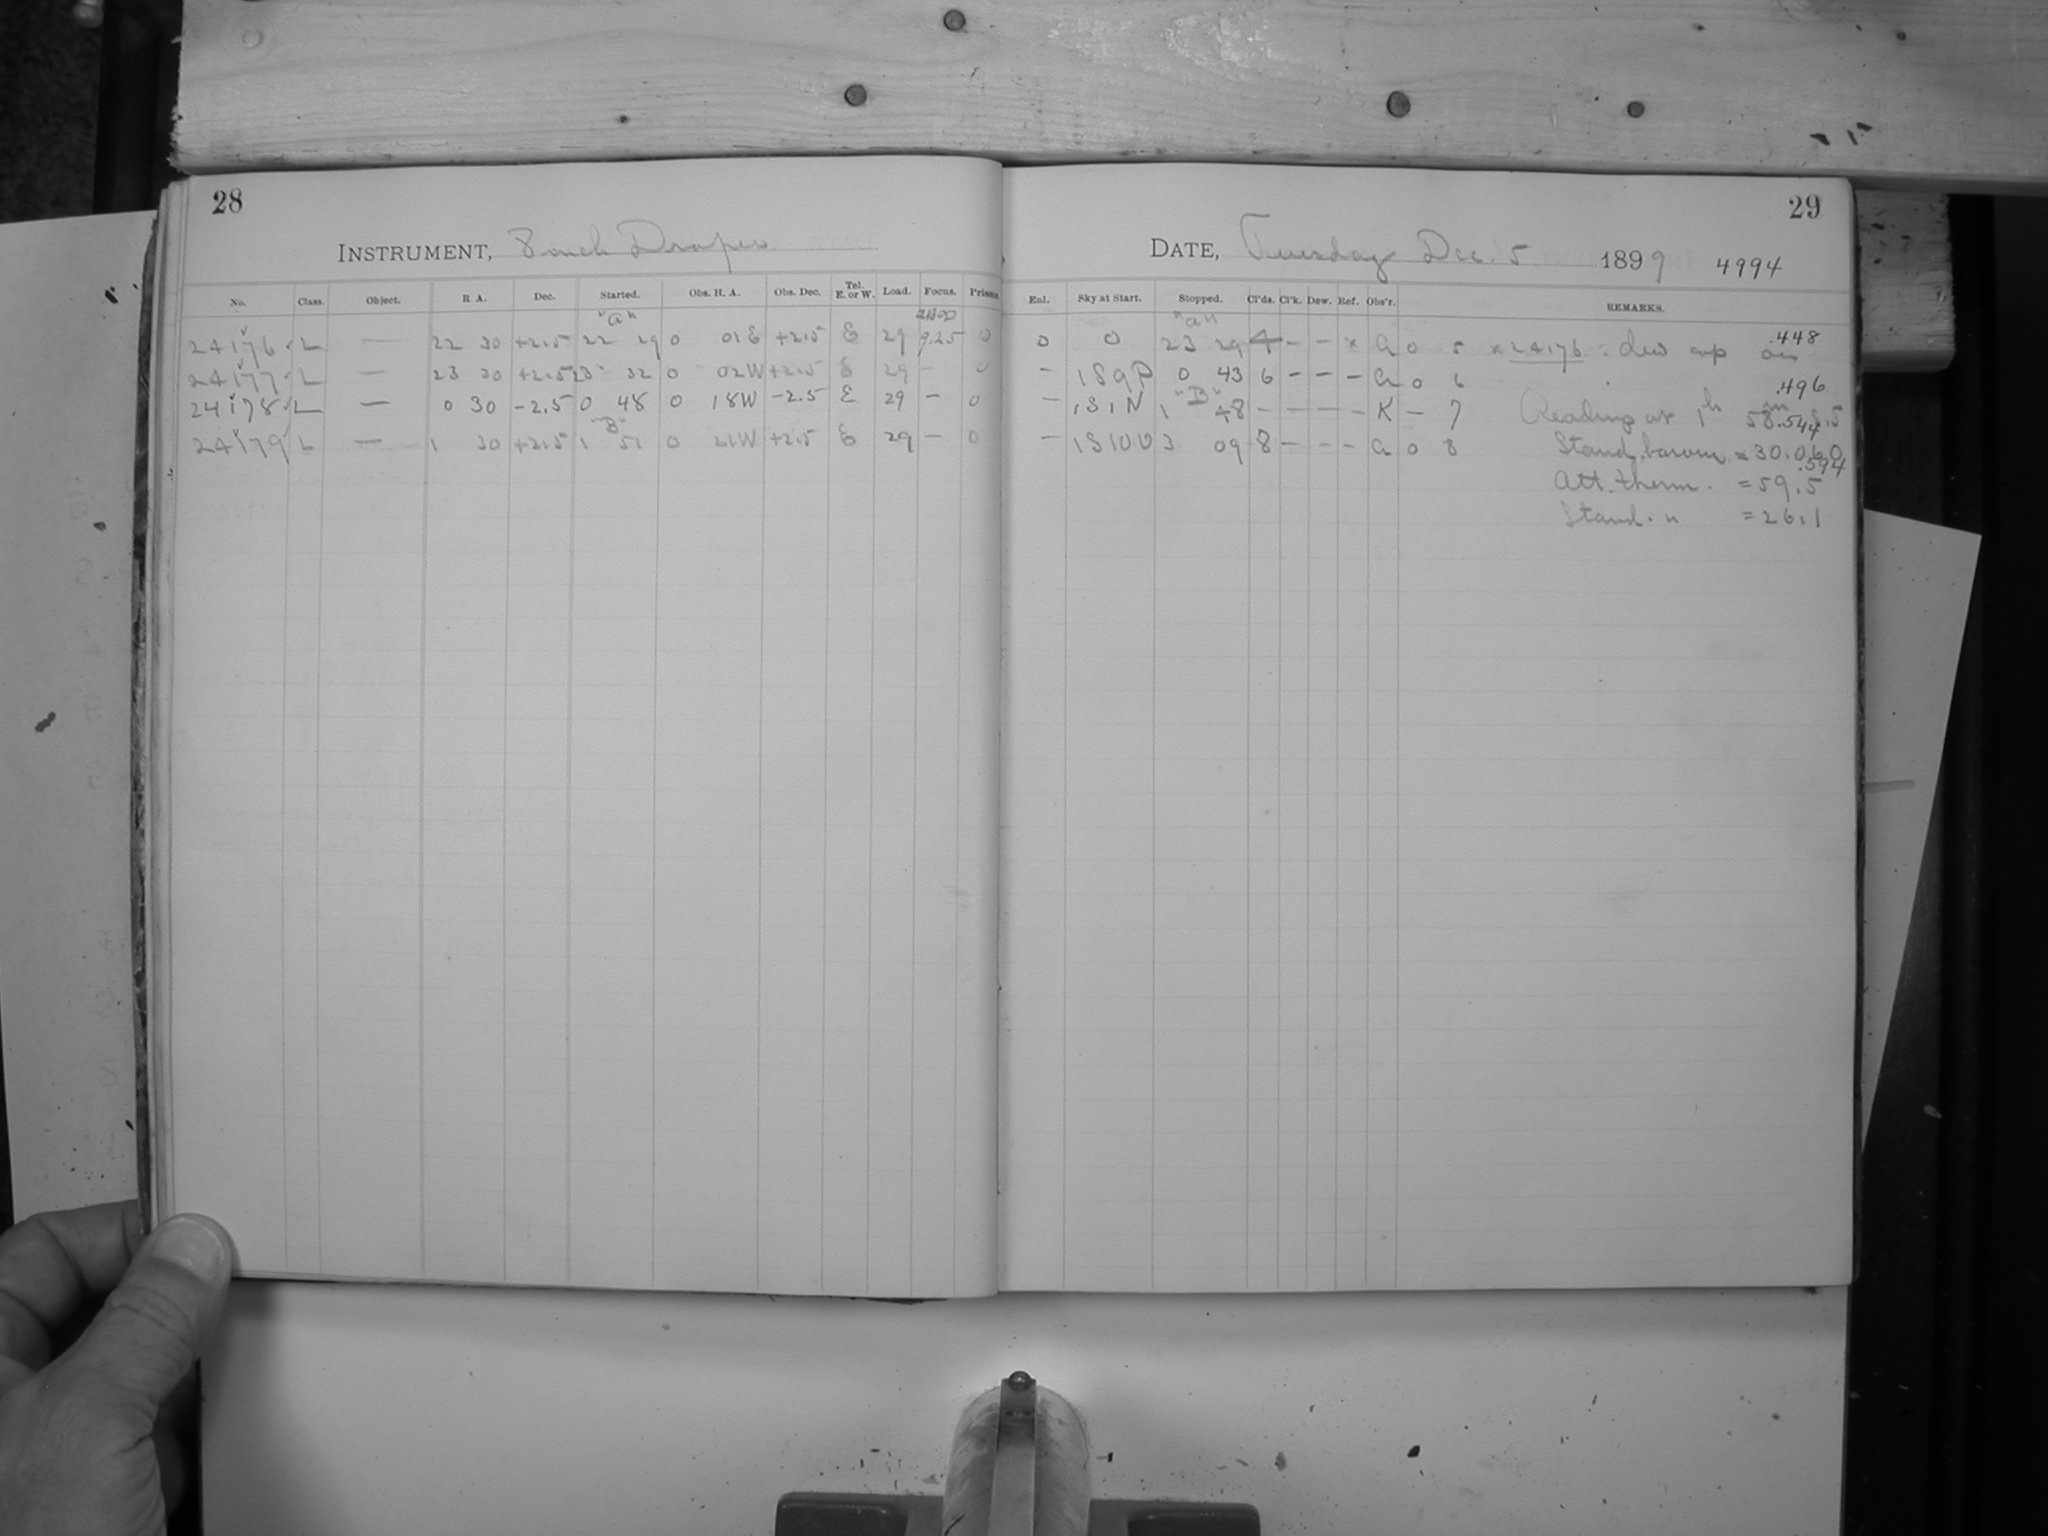 28
INSTRUMENT, 8 inch Draper
No. Class. Object. R A. Dec. Started. Obs. H. A. Obs. Dec. Tel. E. or W. Load. Focus. Prisms
"a"
24176 L — 22 30 +2.5 22 29 0 01E +2.5 E 29 9.25 0
24177 L — 23 30 +2.5 23 32 0 02W +2.5 E 29 - 0
24178 L — 0 30 -2.5 0 48 0 18W -2.5 E 29 - 0
"B"
24179 L — 1 30 +2.5 1 51 0 21W +2.5 E 29 - 0
29
DATE, Tuesday Dec. 5 1899 4994
Enl. Sky at Start. Stopped. Cl'ds. Cl'k. Dew. Ref. Obs'r. REMARKS.
"a"
.448
0 0 23 29 4 - - x a 0 5 x 24176 : dew cap on
- 1S9P 0 43 6 - - - a 0 6
.496
"B"
- 1S1N 1 48 - - - - K - 7 Reading at 1h 58m.5
.544
- 1S10U 3 09 8 - - - a 0 8 Stand. barom. = 30.060
.594
Att. therm. = 59.5
Stand. " = 26.1